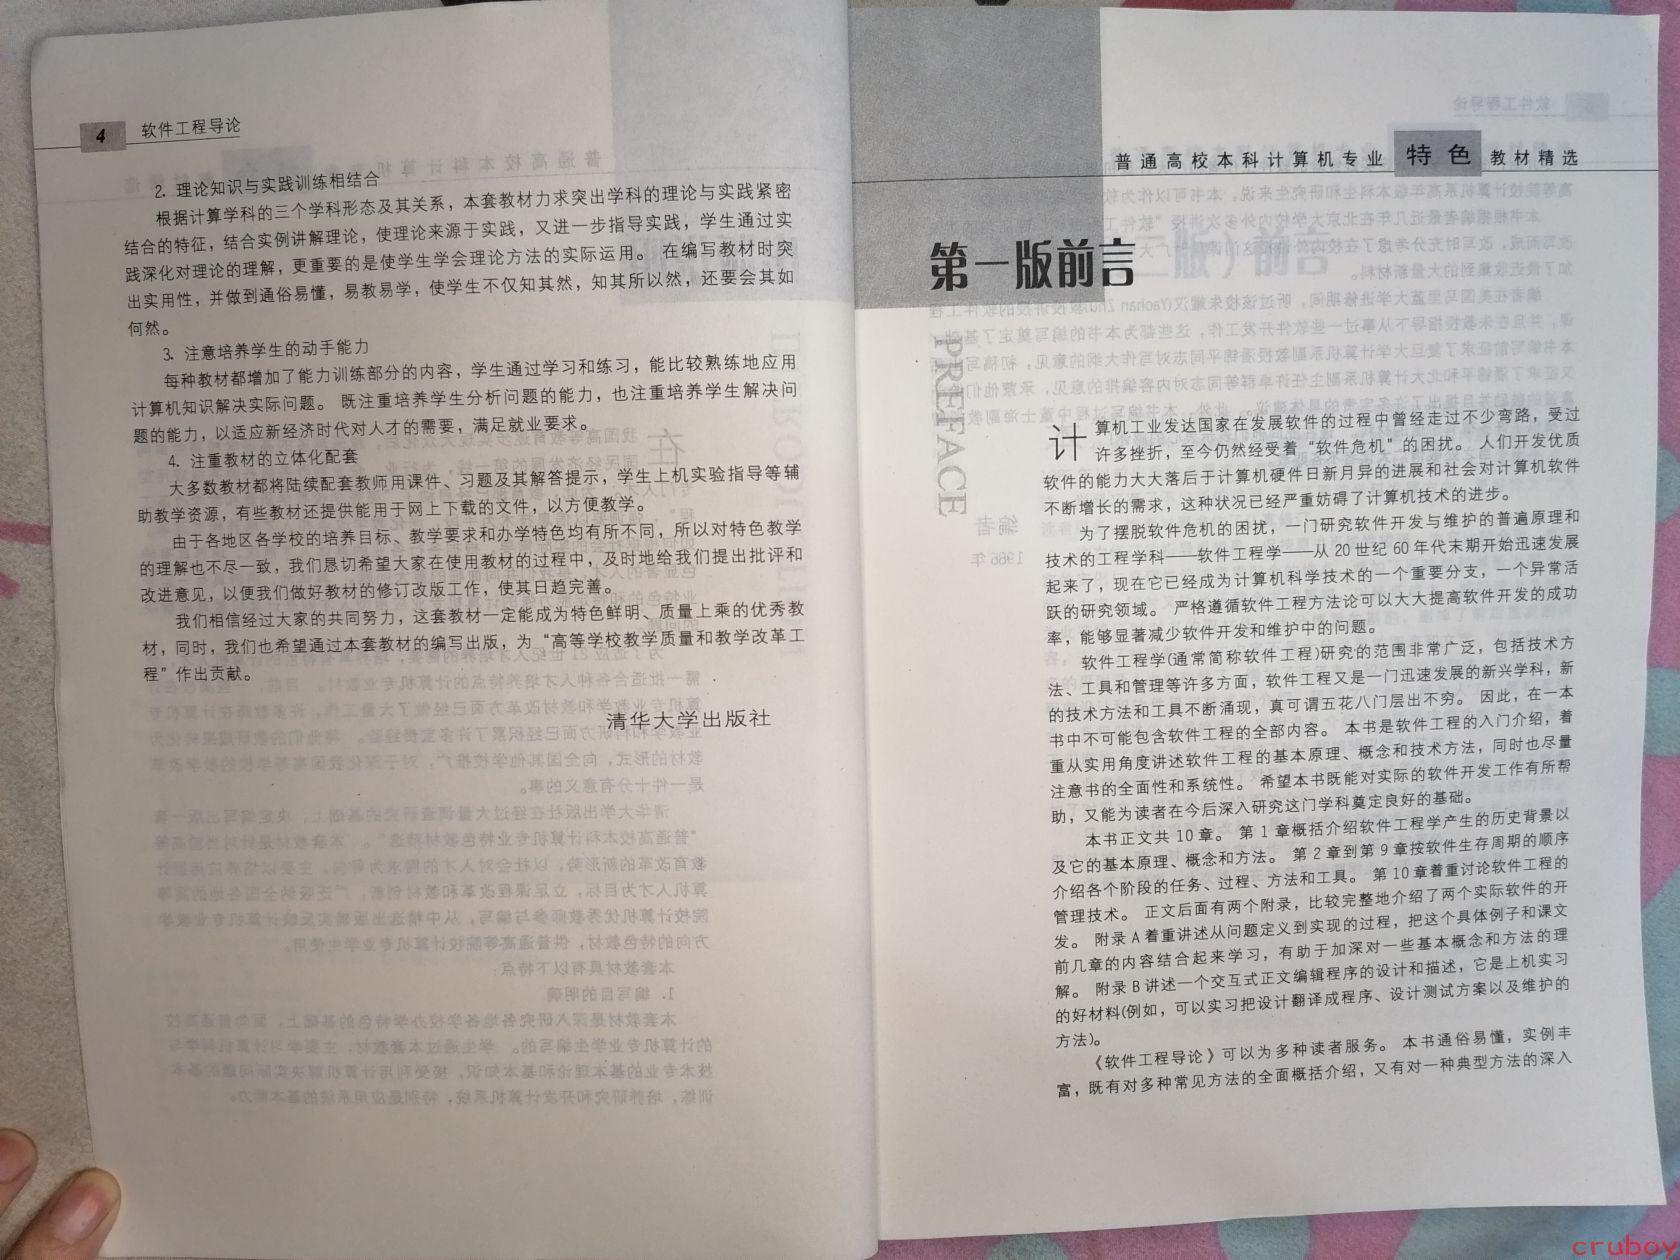 4 软件工程导论
2. 理论知识与实践训练相结合
根据计算学科的三个学科形态及其关系，本套教材力求突出学科的理论与实践紧密
结合的特征，结合实例讲解理论，使理论来源于实践，又进一步指导实践，学生通过实
践深化对理论的理解，更重要的是使学生学会理论方法的实际运用。 在编写教材时突
出实用性，并做到通俗易懂，易教易学，使学生不仅知其然，知其所以然，还要会其如
何然。
3. 注意培养学生的动手能力
每种教材都增加了能力训练部分的内容，学生通过学习和练习，能比较熟练地应用
计算机知识解决实际问题。 既注重培养学生分析问题的能力，也注重培养学生解决问
题的能力，以适应新经济时代对人才的需要，满足就业要求。
4. 注重教材的立体化配套
大多数教材都将陆续配套教师用课件、习题及其解答提示，学生上机实验指导等辅
助教学资源，有些教材还提供能用于网上下载的文件，以方便教学。
由于各地区各学校的培养目标、教学要求和办学特色均有所不同，所以对特色教学
的理解也不尽一致，我们恳切希望大家在使用教材的过程中，及时地给我们提出批评和
改进意见，以便我们做好教材的修订改版工作，使其日趋完善。
我们相信经过大家的共同努力，这套教材一定能成为特色鲜明、质量上乘的优秀教
材，同时，我们也希望通过本套教材的编写出版，为“高等学校教学质量和教学改革工
程”作出贡献。
清华大学出版社
普通高校本科计算机专业 特色 教材精选
第一版前言
PREFACE
计算机工业发达国家在发展软件的过程中曾经走过不少弯路，受过
许多挫折，至今仍然经受着“软件危机”的困扰。 人们开发优质
软件的能力大大落后于计算机硬件日新月异的进展和社会对计算机软件
不断增长的需求，这种状况已经严重妨碍了计算机技术的进步。
为了摆脱软件危机的困扰，一门研究软件开发与维护的普遍原理和
技术的工程学科——软件工程学——从 20 世纪 60 年代末期开始迅速发展
起来了，现在它已经成为计算机科学技术的一个重要分支，一个异常活
跃的研究领域。 严格遵循软件工程方法论可以大大提高软件开发的成功
率，能够显著减少软件开发和维护中的问题。
软件工程学(通常简称软件工程)研究的范围非常广泛，包括技术方
法、工具和管理等许多方面，软件工程又是一门迅速发展的新兴学科，新
的技术方法和工具不断涌现，真可谓五花八门层出不穷。 因此，在一本
书中不可能包含软件工程的全部内容。 本书是软件工程的入门介绍，着
重从实用角度讲述软件工程的基本原理、概念和技术方法，同时也尽量
注意书的全面性和系统性。 希望本书既能对实际的软件开发工作有所帮
助，又能为读者在今后深入研究这门学科奠定良好的基础。
本书正文共 10 章。 第 1 章概括介绍软件工程学产生的历史背景以
及它的基本原理、概念和方法。 第 2 章到第 9 章按软件生存周期的顺序
介绍各个阶段的任务、过程、方法和工具。 第 10 章着重讨论软件工程的
管理技术。 正文后面有两个附录，比较完整地介绍了两个实际软件的开
发。 附录 A 着重讲述从问题定义到实现的过程，把这个具体例子和课文
前几章的内容结合起来学习，有助于加深对一些基本概念和方法的理
解。 附录 B 讲述一个交互式正文编辑程序的设计和描述，它是上机实习
的好材料(例如，可以实习把设计翻译成程序、设计测试方案以及维护的
方法)。
《软件工程导论》可以为多种读者服务。 本书通俗易懂，实例丰
富，既有对多种常见方法的全面概括介绍，又有对一种典型方法的深入
cruboy